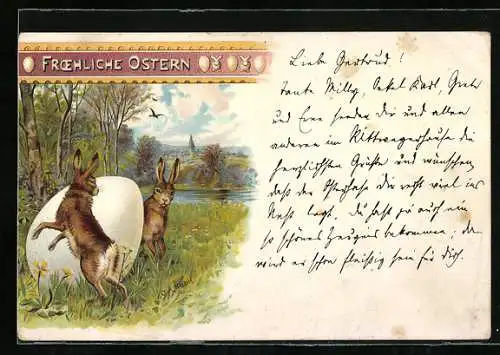 FRŒHLICHE OSTERN
Liebe Gertrud!
Tante Milly, Onkel Karl, Grete
und Erna senden dir und allen
anderen im Rittwegerhause die
herzlichsten Grüße und wünschen,
daß der Osterhase dir recht viel ins
Nest legt. Du hast ja auch ein
so schönes Zeugnis bekommen; da
wird er schon fleißig sein für dich.